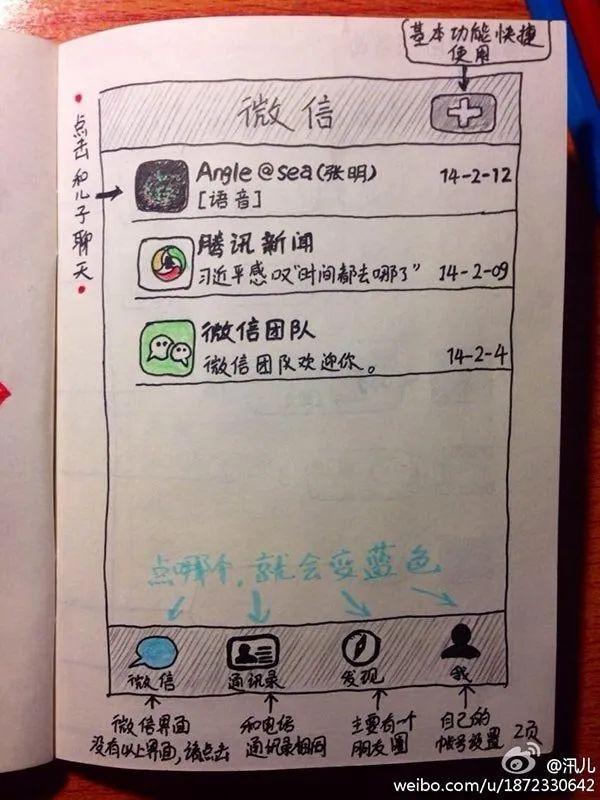 基本功能快捷
使用
微信
点击和儿子聊天
Angle@sea(张明)
14-2-12
[语音]
腾讯新闻
习近平感叹"时间都去哪了"
14-2-09
微信团队
微信团队欢迎你。
14-2-4
点哪个,就会变蓝色
微信
通讯录
发现
我
微信界面
没有以上界面,请点击
和电话
通讯录相同
主要有一个
朋友圈
自己的
帐号设置
2页
@汛儿
weibo.com/u/1872330642